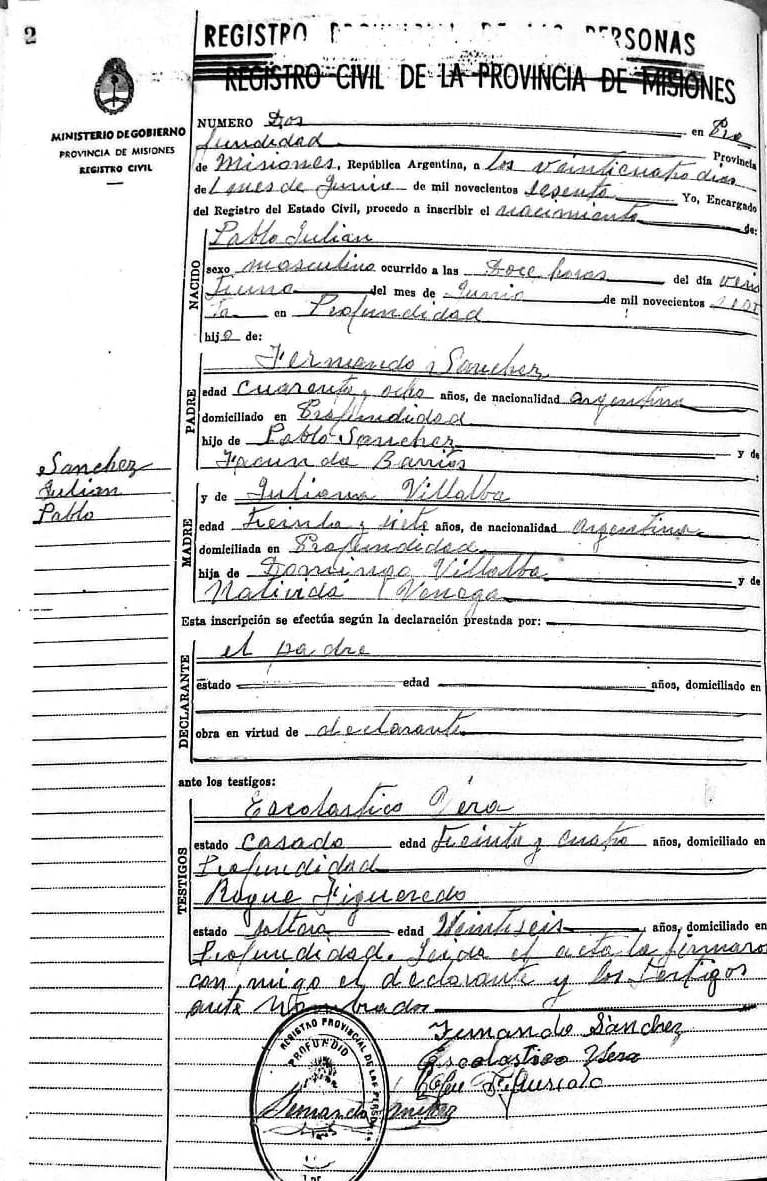 2
REGISTRO PROVINCIAL DE LAS PERSONAS
REGISTRO CIVIL DE LA PROVINCIA DE MISIONES
MINISTERIO DE GOBIERNO
PROVINCIA DE MISIONES
REGISTRO CIVIL
NUMERO Dos en Pro
fundidad Provincia
de Misiones, República Argentina, a los veinticuatro dias
de l mes de Junio de mil novecientos sesenta Yo, Encargado
del Registro del Estado Civil, procedo a inscribir el nacimiento de:
NACIDO
Pablo Julian
sexo masculino ocurrido a las Doce horas del día vein
tiuno del mes de Junio de mil novecientos sesen
ta en Profundidad
hijo de:
PADRE
Fernando Sanchez
edad cuarenta y ocho años, de nacionalidad argentina
domiciliado en Profundidad
hijo de Pablo Sanchez y de
Facunda Barrios :
Sanchez
Julian
Pablo
MADRE
y de Juliana Villalba
edad Treinta y siete años, de nacionalidad argentina
domiciliada en Profundidad
hija de Domingo Villalba y de
Natividá Venega
Esta inscripción se efectúa según la declaración prestada por:
DECLARANTE
el padre
estado edad años, domiciliado en
obra en virtud de declarante
ante los testigos:
TESTIGOS
Escolastico Vera
estado casado edad Treinta y cuatro años, domiciliado en
Profundidad
Roque Figueredo
estado soltero edad Veintiseis años, domiciliado en
Profundidad. Leida el acta la firmaron
con migo el declarante y los Testigos
ante nombrados
Fernando Sánchez
Escolastico Vera
REGISTRO PROVINCIAL DE LAS PERSONAS
PROFUNDID